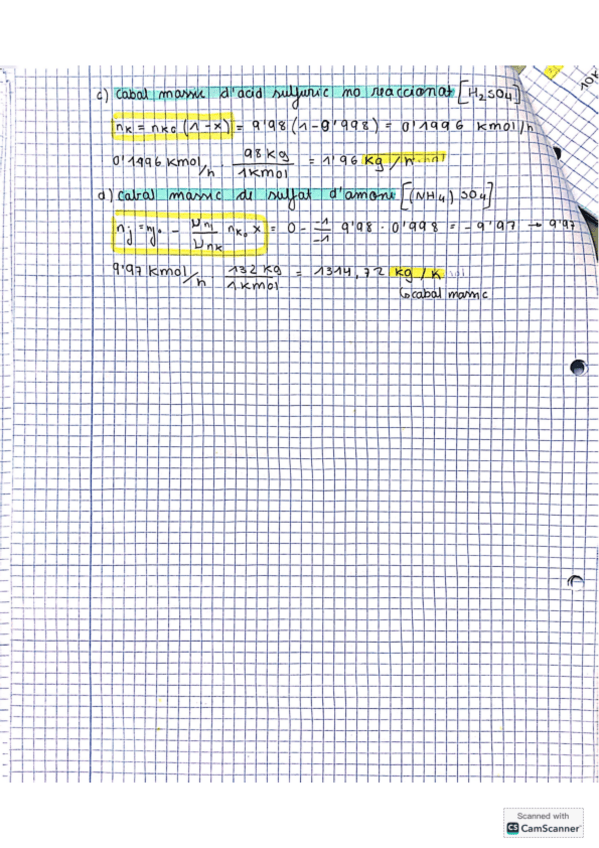 c) cabal massic d'acid sulfuric no reaccionat [H2SO4]
nk = nko (1-x) = 9'98 (1-0'998) = 0'1996 kmol/h
0'1996 kmol/h · 98 kg / 1 kmol = 1'96 kg/h
d) cabal massic de sulfat d'amoni [(NH4) SO4]
nj = njo - νn/νnk nko x = 0 - -1/-1 9'98 · 0'998 = -9'97 → 9'97
9'97 kmol/h 132 kg / 1 kmol = 1314,72 kg/h
↳ cabal massic
10k
Scanned with
CS CamScanner